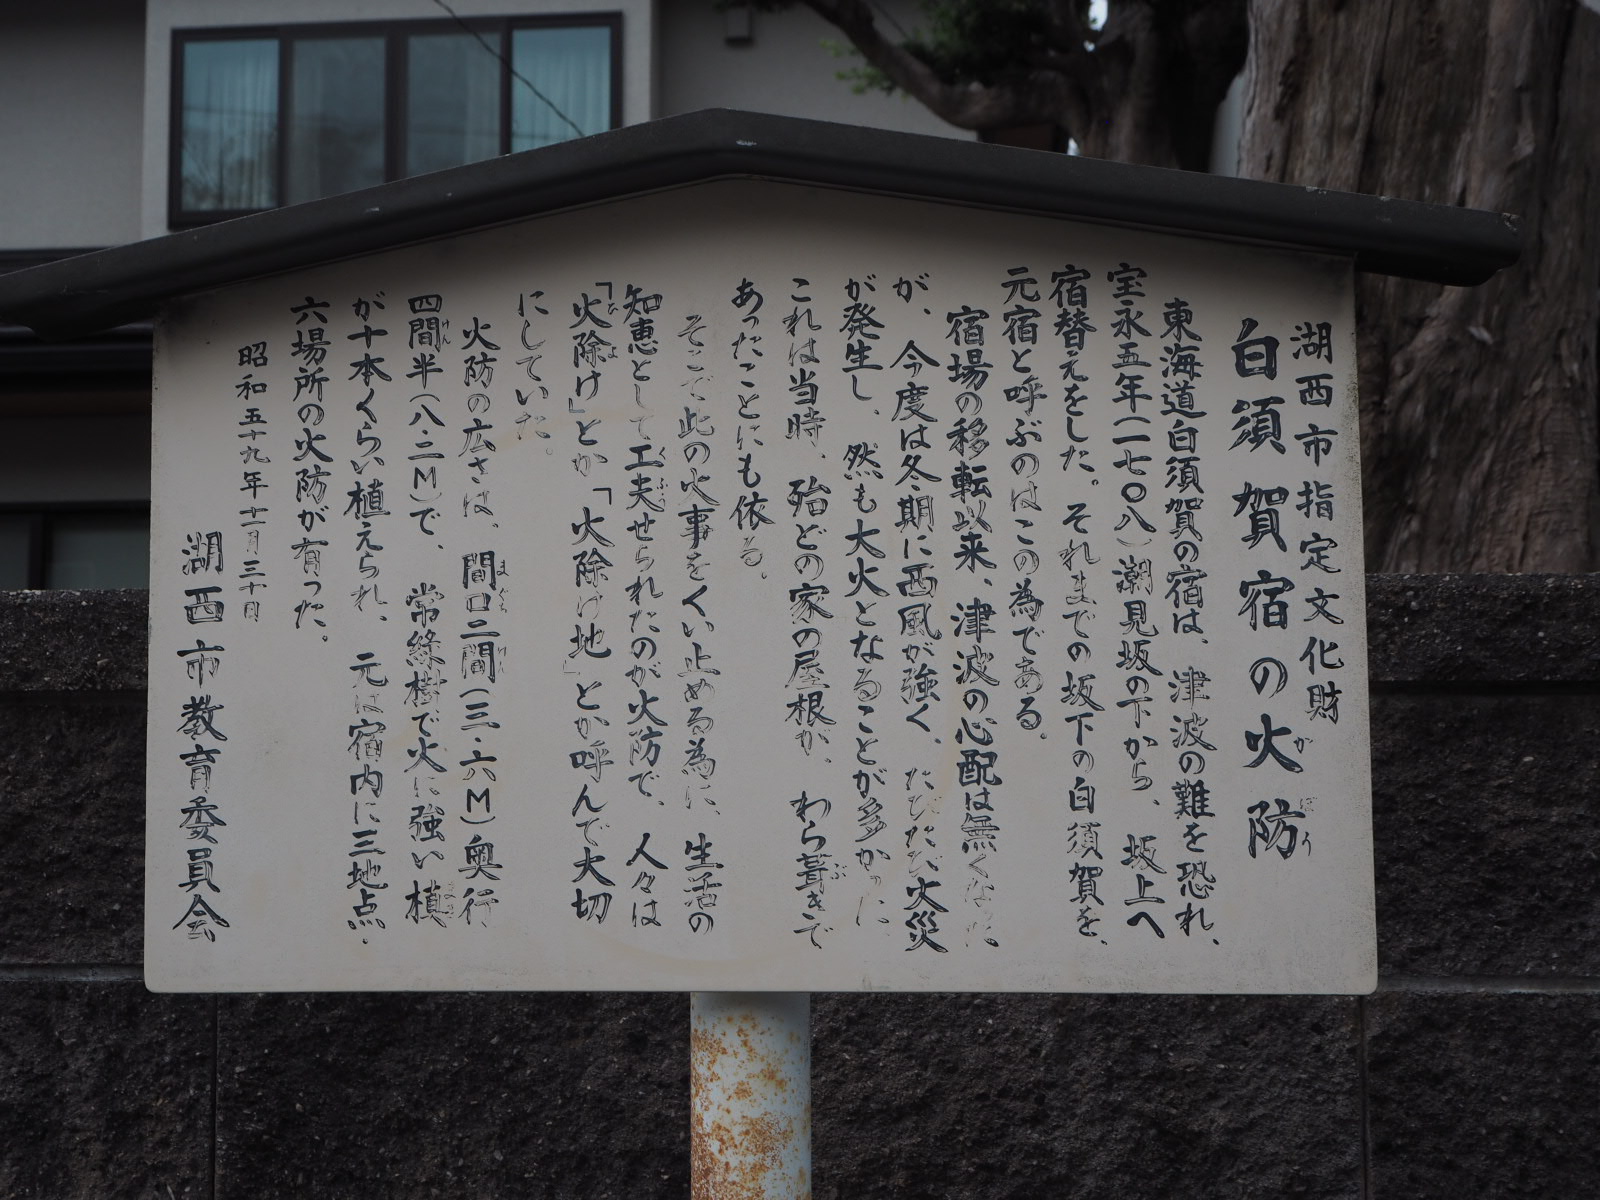 湖西市指定文化財
白須賀宿の火防
東海道白須賀の宿は、津波の難を恐れ、
宝永五年(一七〇八)潮見坂の下から、坂上へ
宿替えをした。それまでの坂下の白須賀を、
元宿と呼ぶのはこの為である。
宿場の移転以来、津波の心配は無くなった
が、今度は冬期に西風が強く、たびたび火災
が発生し、然も大火となることが多かった。
これは当時、殆どの家の屋根が、わら葺きで
あったことにも依る。
そこで此の火事をくい止める為に、生活の
知恵として工夫せられたのが火防で、人々は
「火除け」とか「火除け地」とか呼んで大切
にしていた。
火防の広さは、間口二間(三・六M)奥行
四間半(八・二M)で、常緑樹で火に強い槙
が十本くらい植えられ、元は宿内に三地点・
六場所の火防が有った。
昭和五十九年十一月三十日
湖西市教育委員会